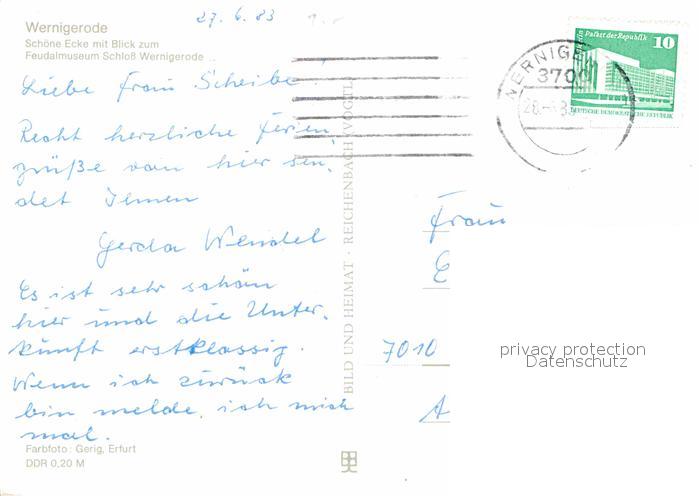 27.6.83
Wernigerode
Schöne Ecke mit Blick zum
Feudalmuseum Schloß Wernigerode
Liebe Frau Scheibe
Recht herzliche Ferien
grüße von hier sen-
det Ihnen
Gerda Wendel
Es ist sehr schön
hier und die Unter-
kunft erstklassig.
Wenn ich zurück
bin melde ich mich
mal.
Farbfoto: Gerig, Erfurt
DDR 0,20 M
BILD UND HEIMAT · REICHENBACH (VOGTL)
Palast der Republik
10
DEUTSCHE DEMOKRATISCHE REPUBLIK
WERNIGE
3700
Frau
E
7010
privacy protection
Datenschutz
A